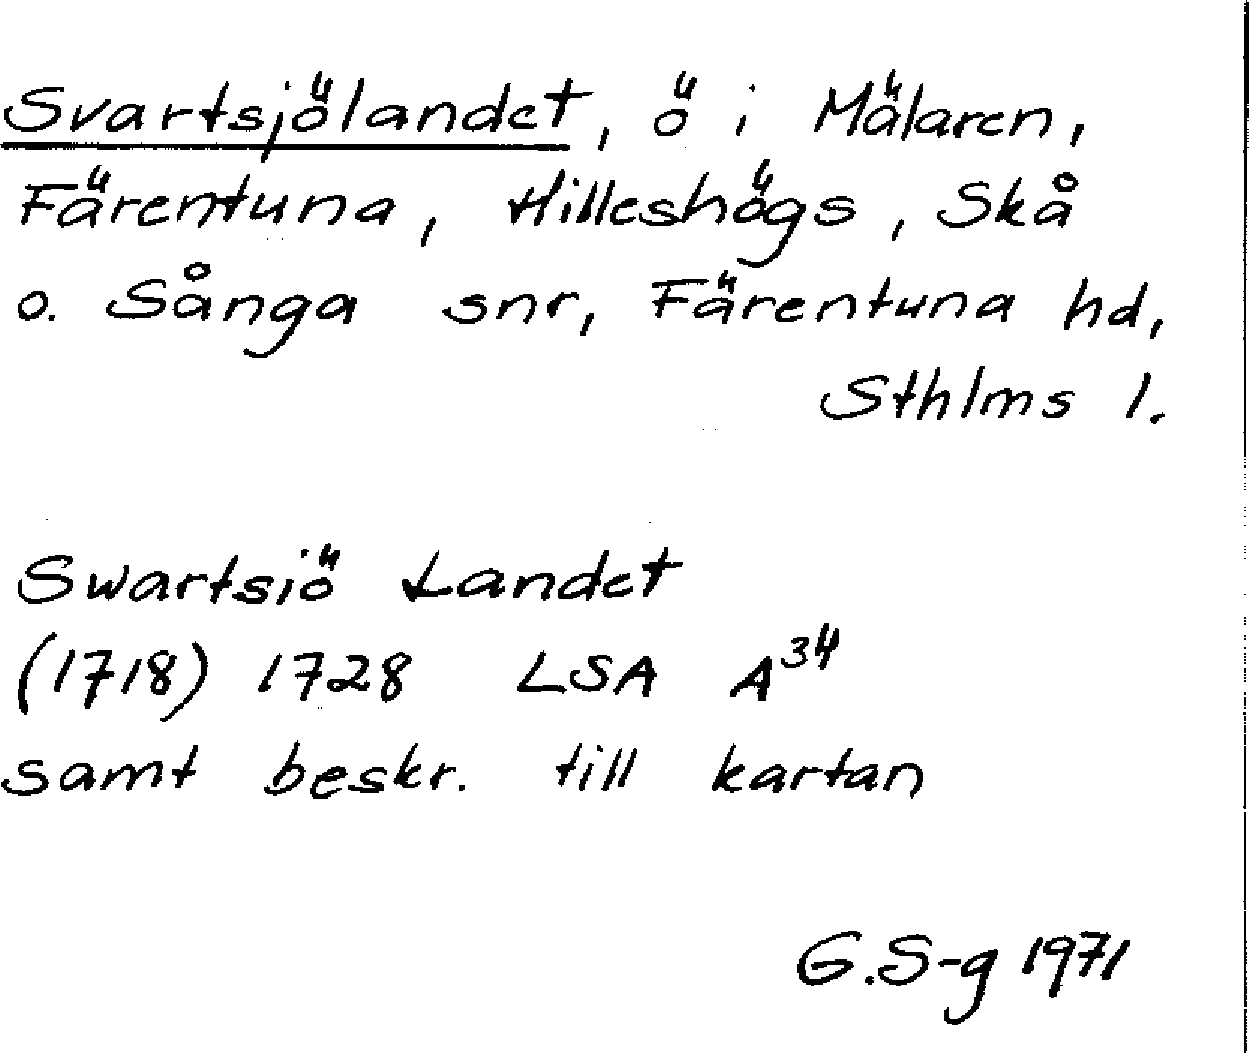 Svartsjölandet, ö i Mälaren,
Färentuna, Hilleshögs, Skå
o. Sånga snr, Färentuna hd,
Sthlms l.
Swartsiö Landet
(1718) 1728 LSA A³⁴
samt beskr. till kartan
G.S-g 1971